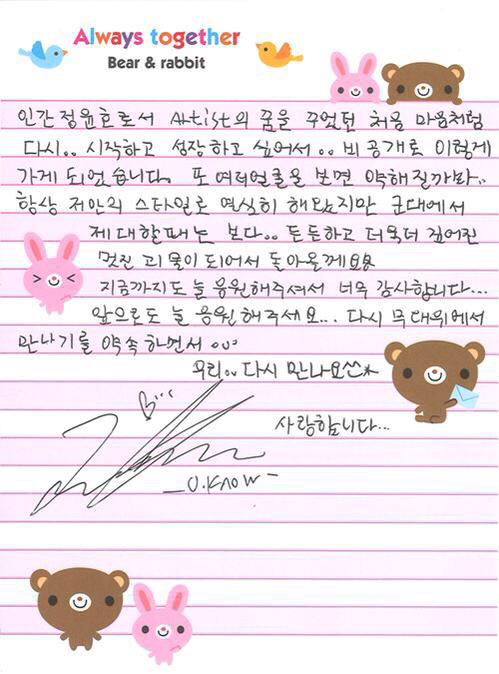 Always together
Bear & rabbit
인간정윤호로서 Artist의 꿈을 꾸었던 처음 마음처럼
다시.. 시작하고 성장하고 싶어서.. 비공개로 이렇게
가게 되었습니다. 또 여러얼굴을 보면 약해질까봐..
항상 저만의 스타일로 열심히 해왔지만 군대에서
제대할때는 보다.. 든든하고 더욱더 깊어진
멋진 괴물이 되어서 돌아올께요
지금까지도 늘 응원해주셔서 너무 감사합니다...
앞으로도 늘 응원해주세요... 다시 무대위에서
만나기를 약속하면서...
우리.. 다시 만나요^^*
사랑합니다...
- U.KNOW -